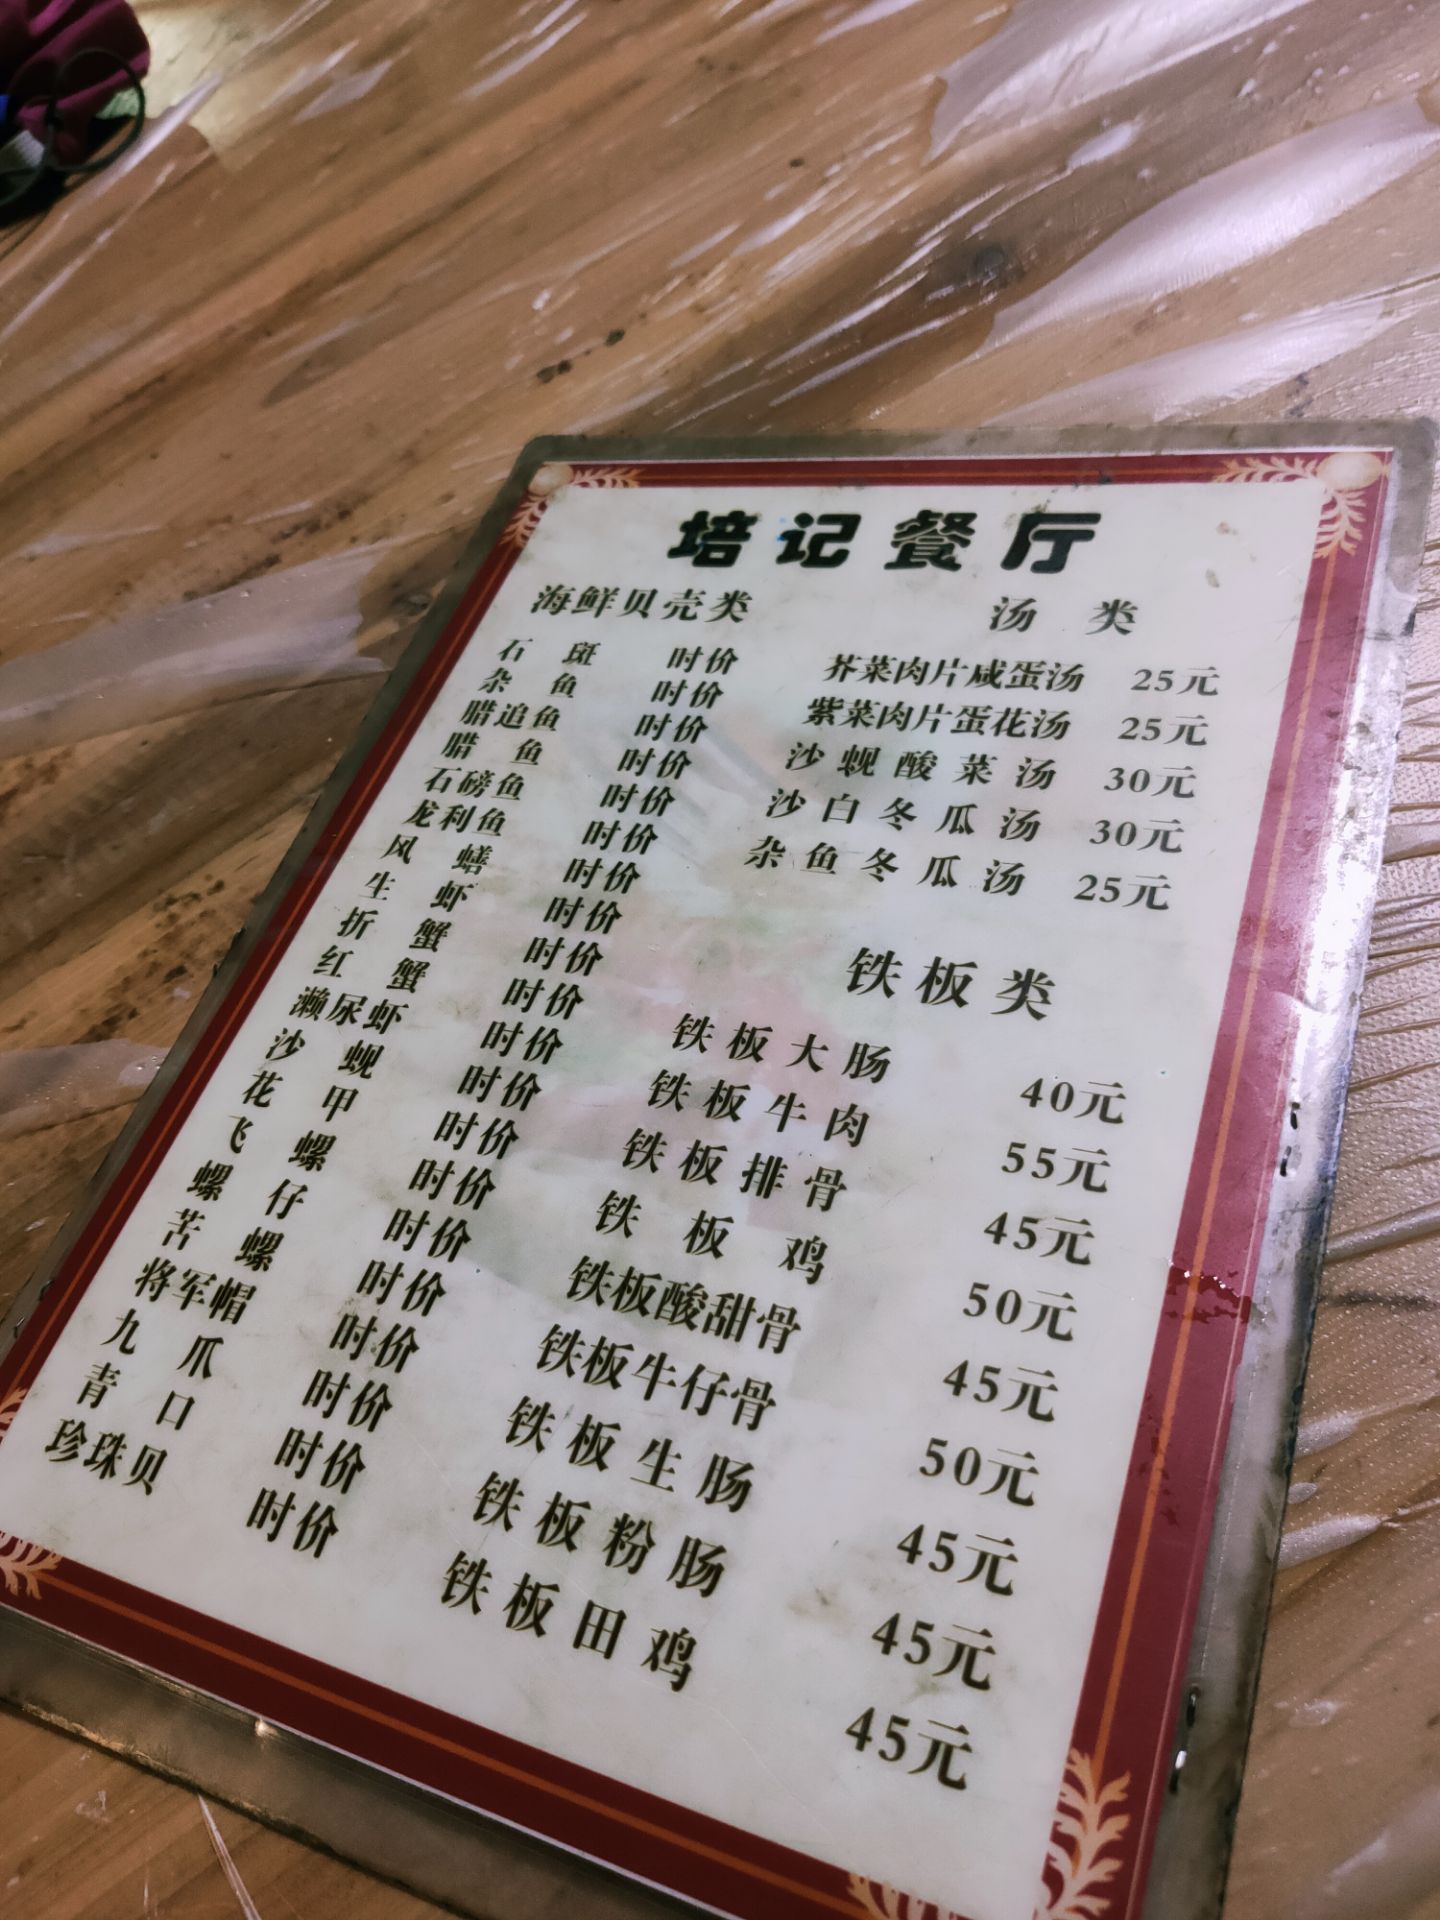 培记餐厅
海鲜贝壳类
石斑 时价
杂鱼 时价
腊追鱼 时价
腊鱼 时价
石磅鱼 时价
龙利鱼 时价
风鳝 时价
生虾 时价
折蟹 时价
红蟹 时价
濑尿虾 时价
沙蚬 时价
花甲 时价
飞螺 时价
螺仔 时价
苦螺 时价
将军帽 时价
九爪 时价
青口 时价
珍珠贝 时价
汤类
芥菜肉片咸蛋汤 25元
紫菜肉片蛋花汤 25元
沙蚬酸菜汤 30元
沙白冬瓜汤 30元
杂鱼冬瓜汤 25元
铁板类
铁板大肠 40元
铁板牛肉 55元
铁板排骨 45元
铁板鸡 50元
铁板酸甜骨 45元
铁板牛仔骨 50元
铁板生肠 45元
铁板粉肠 45元
铁板田鸡 45元